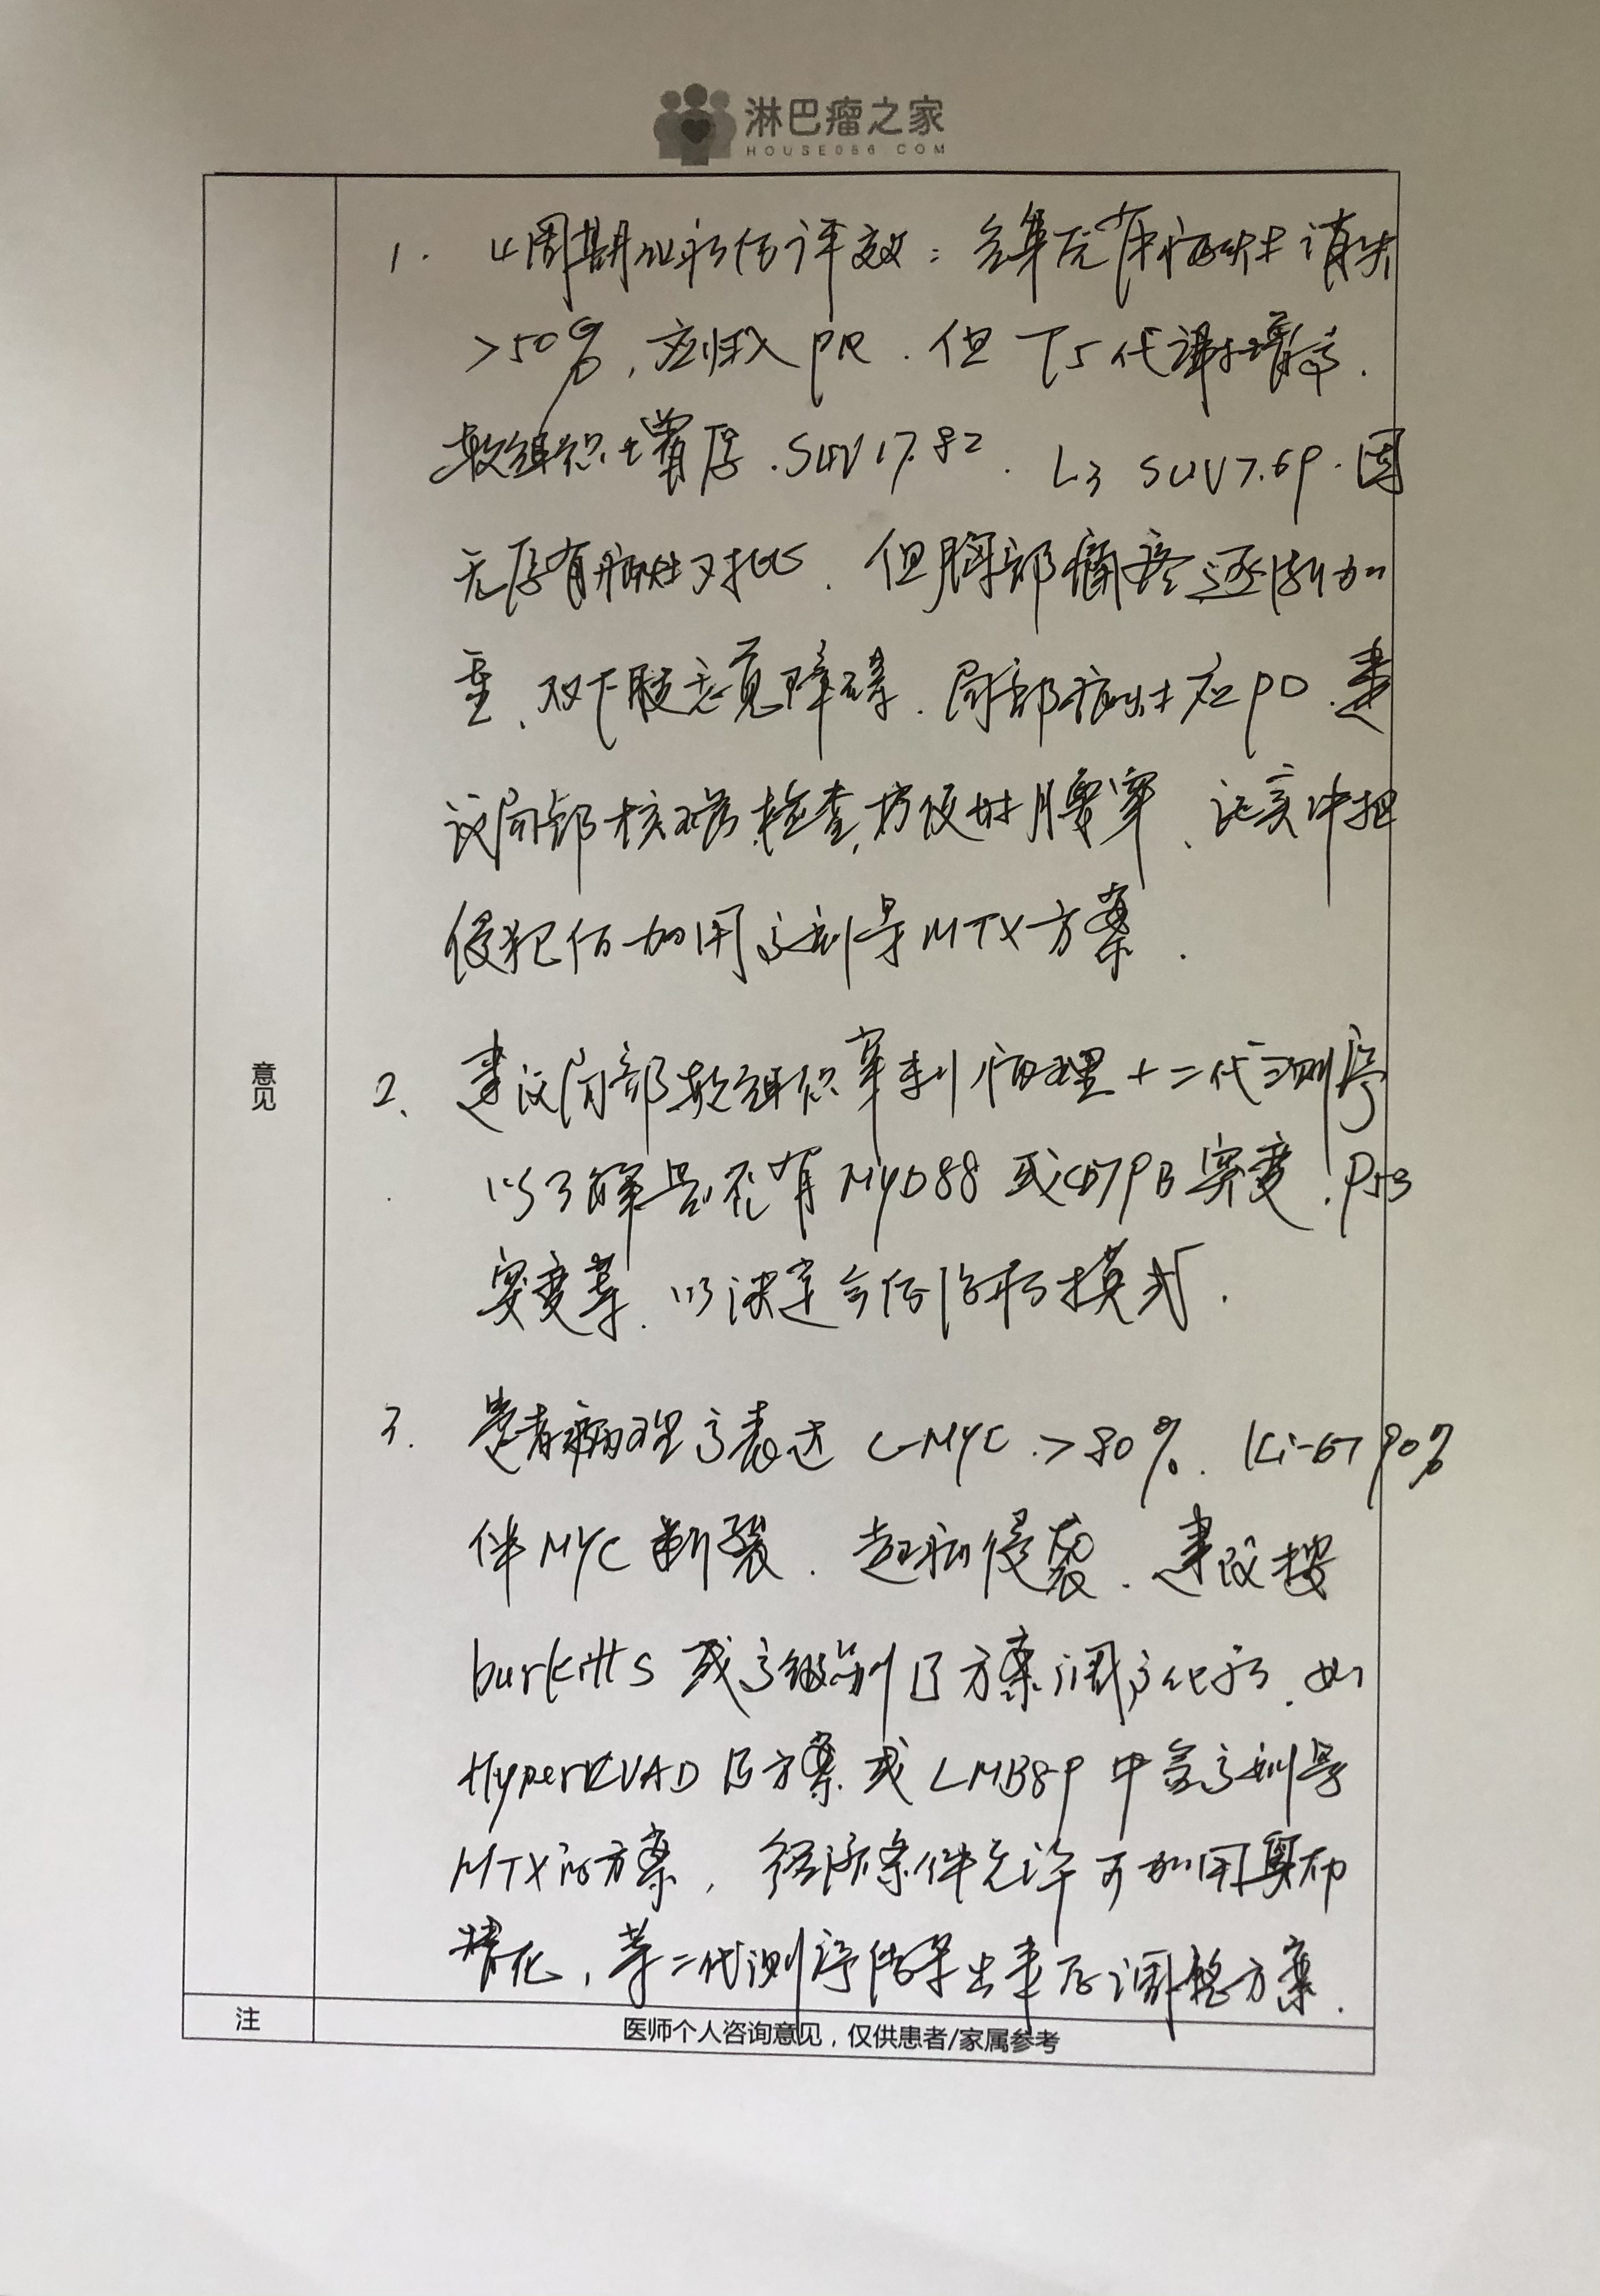 淋巴瘤之家
HOUSE086.COM
1. 4周期化疗后评效：全身原有病灶消失
>50%，应归入PR．但T5代谢增高．
软组织增厚．SUV17.82．L3 SUV7.69．因
无原有病灶对比．但胸部痛疼逐渐加
重、双下肢感觉障碍．局部病灶应PD．建
议局部核磁检查，方便时腰穿、证实中枢
侵犯后加用高剂量MTX方案．
意见
2、建议局部软组织穿刺病理＋二代测序
以了解是否有MYD88或CD79B突变．P53
突变等．以决定今后治疗模式．
3. 患者病理高表达C-MYC >80%．Ki-67 90%
伴MYC断裂．起病侵袭．建议按
burkitts或高级别B方案调高化疗．如
HyperCVAD B方案或LMB89中含高剂量
MTX的方案，经济条件允许可加用
，等二代测序结果出来后调整方案．
注
医师个人咨询意见，仅供患者/家属参考